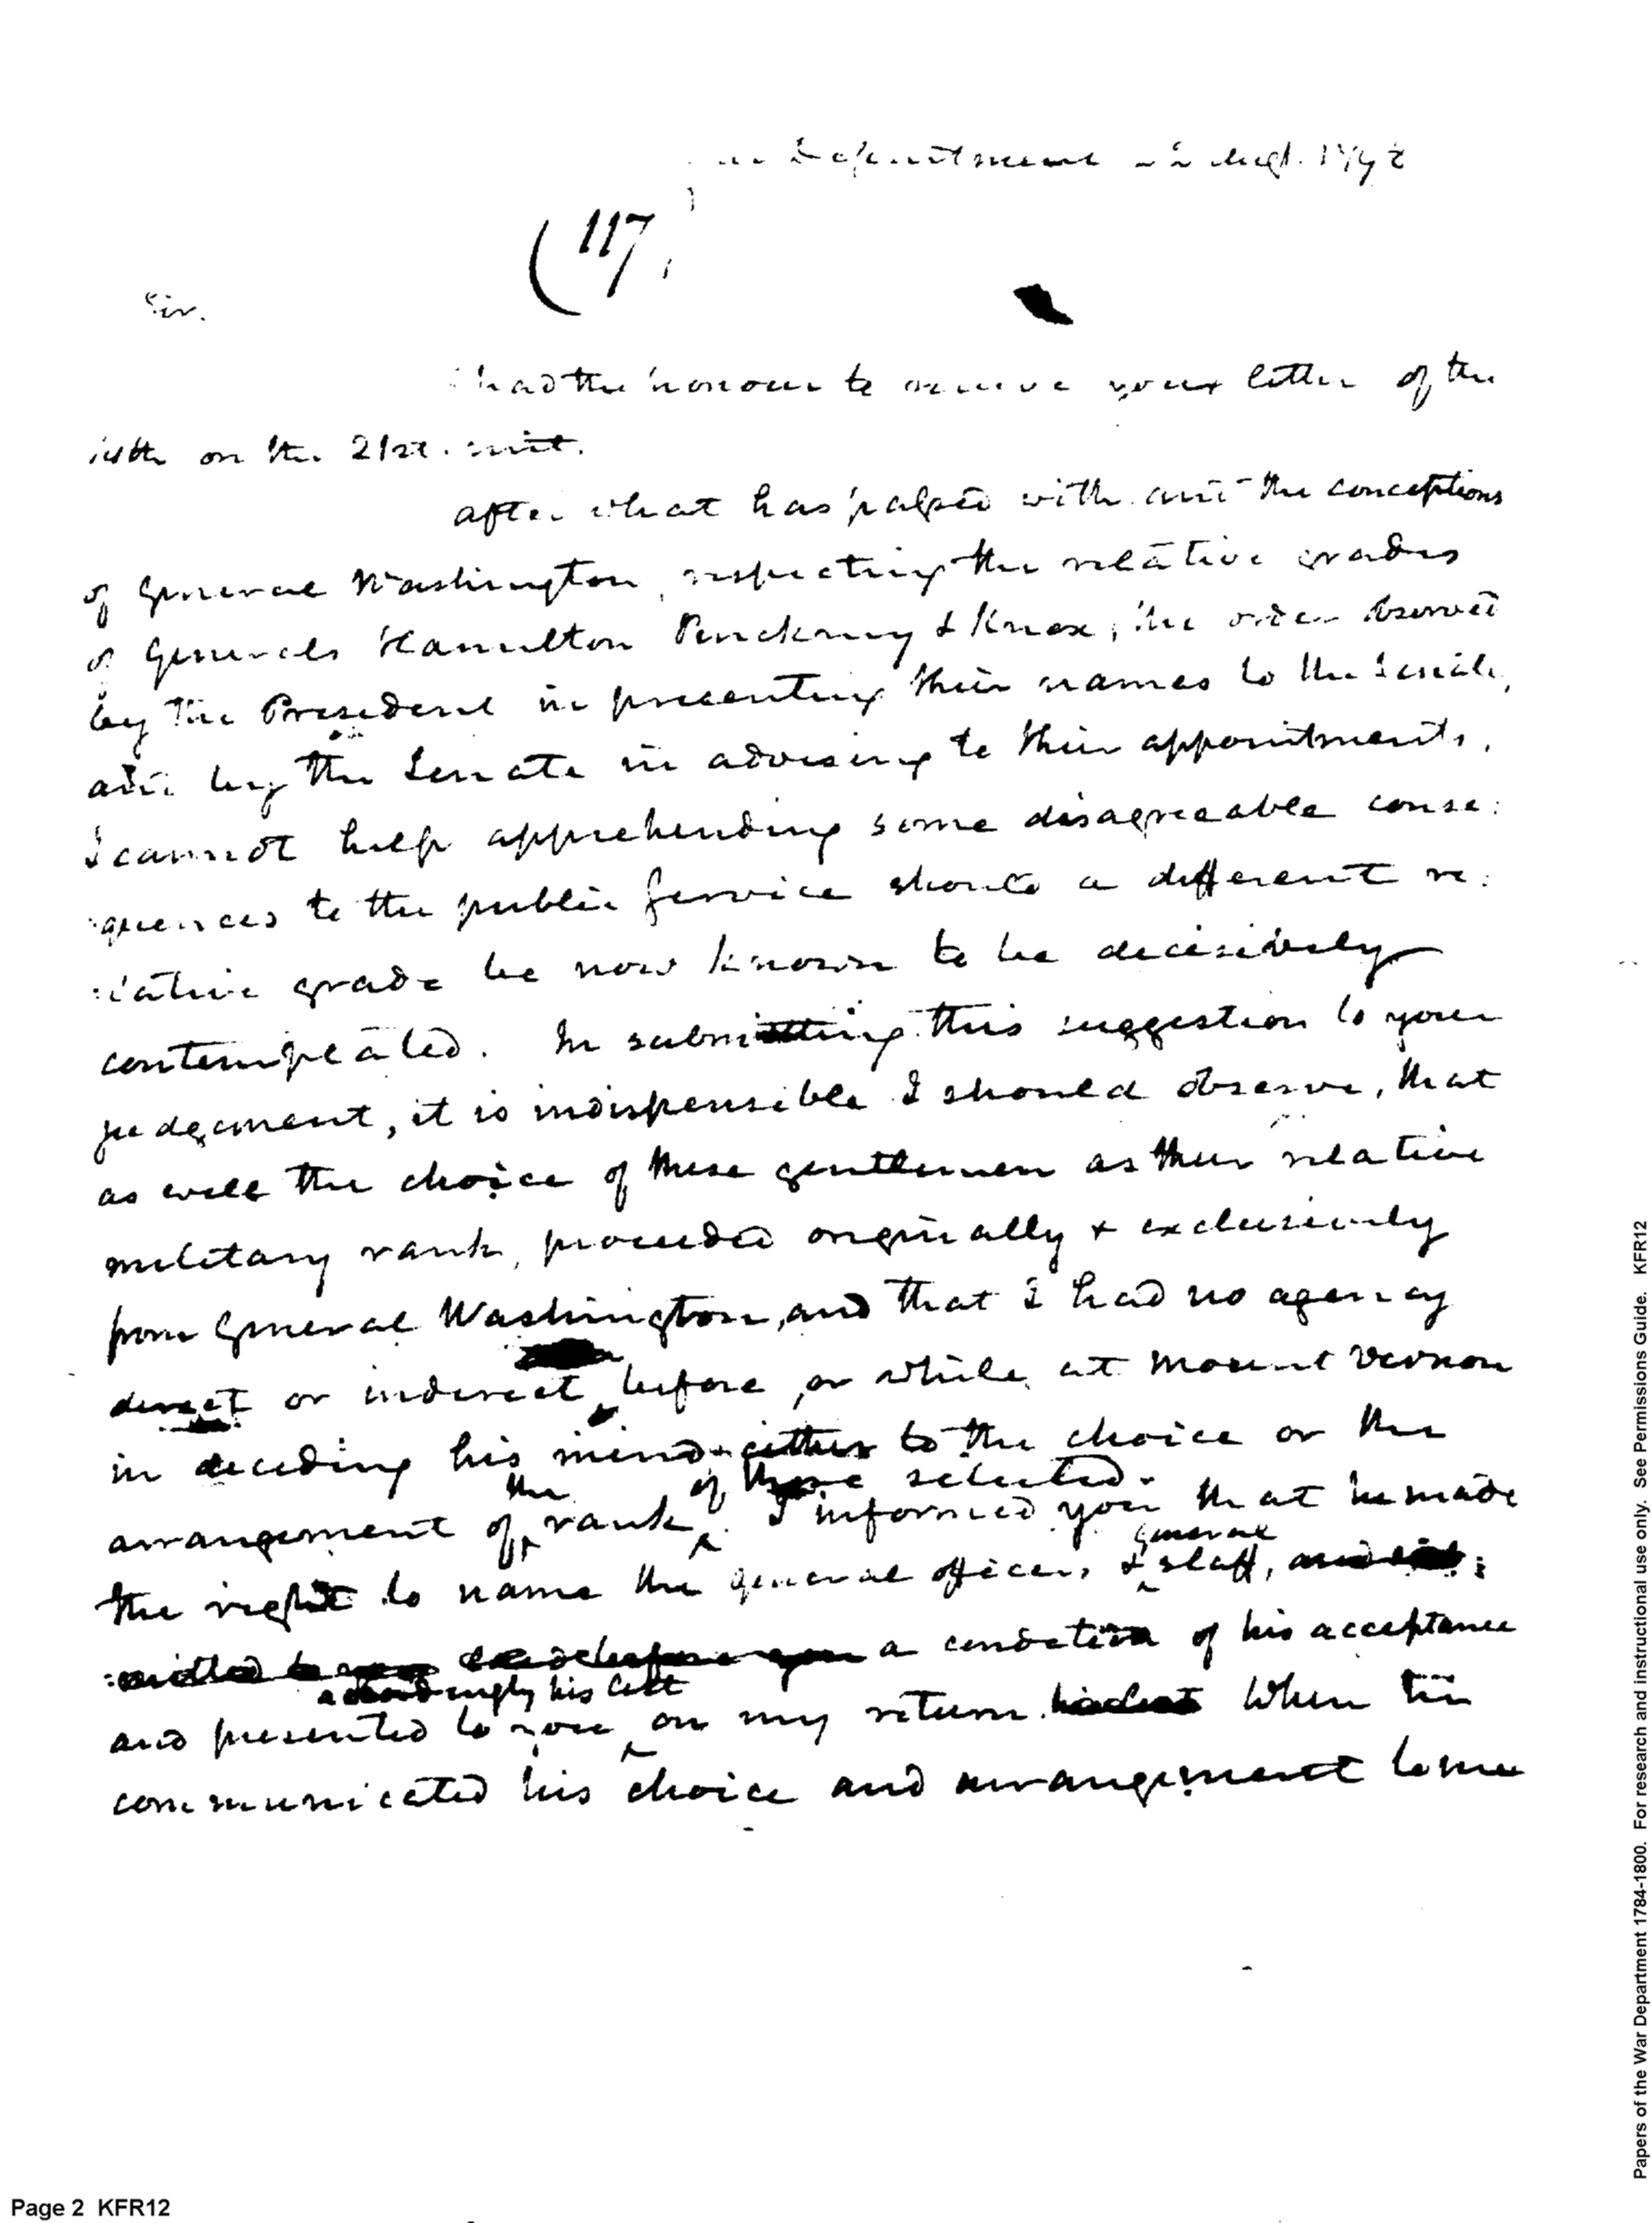 Department 22 Augt. 1798
(117)
Sir.
I had the honour to receive your letter of the
14th on the 21st. inst.
After what has passed with and the conceptions
of General Washington, respecting the relative grades
of Generals Hamilton Pinckney & Knox, the order observed
by the President in presenting their names to the Senate,
and by the Senate in advising to their appointments,
I cannot help apprehending some disagreeable conse:
:quences to the public service should a different re:
:lative grade be now known to be decisively
contemplated. In submitting this suggestion to your
judgement, it is indispensible I should observe, that
as well the choice of these gentlemen as their relative
military rank, proceeded originally & exclusively
from General Washington, and that I had no agency
direct or indirect before, or while at Mount Vernon
in deciding his mind either to the choice or the
the of those selected.
arrangement of rank. I informed you that he made
general
the right to name the general officers & staff,
a condition of his acceptance
accordingly his list
and presented to you on my return When he
communicated his choice and arrangement to me
Page 2 KFR12
Papers of the War Department 1784-1800. For research and instructional use only. See Permissions Guide. KFR12